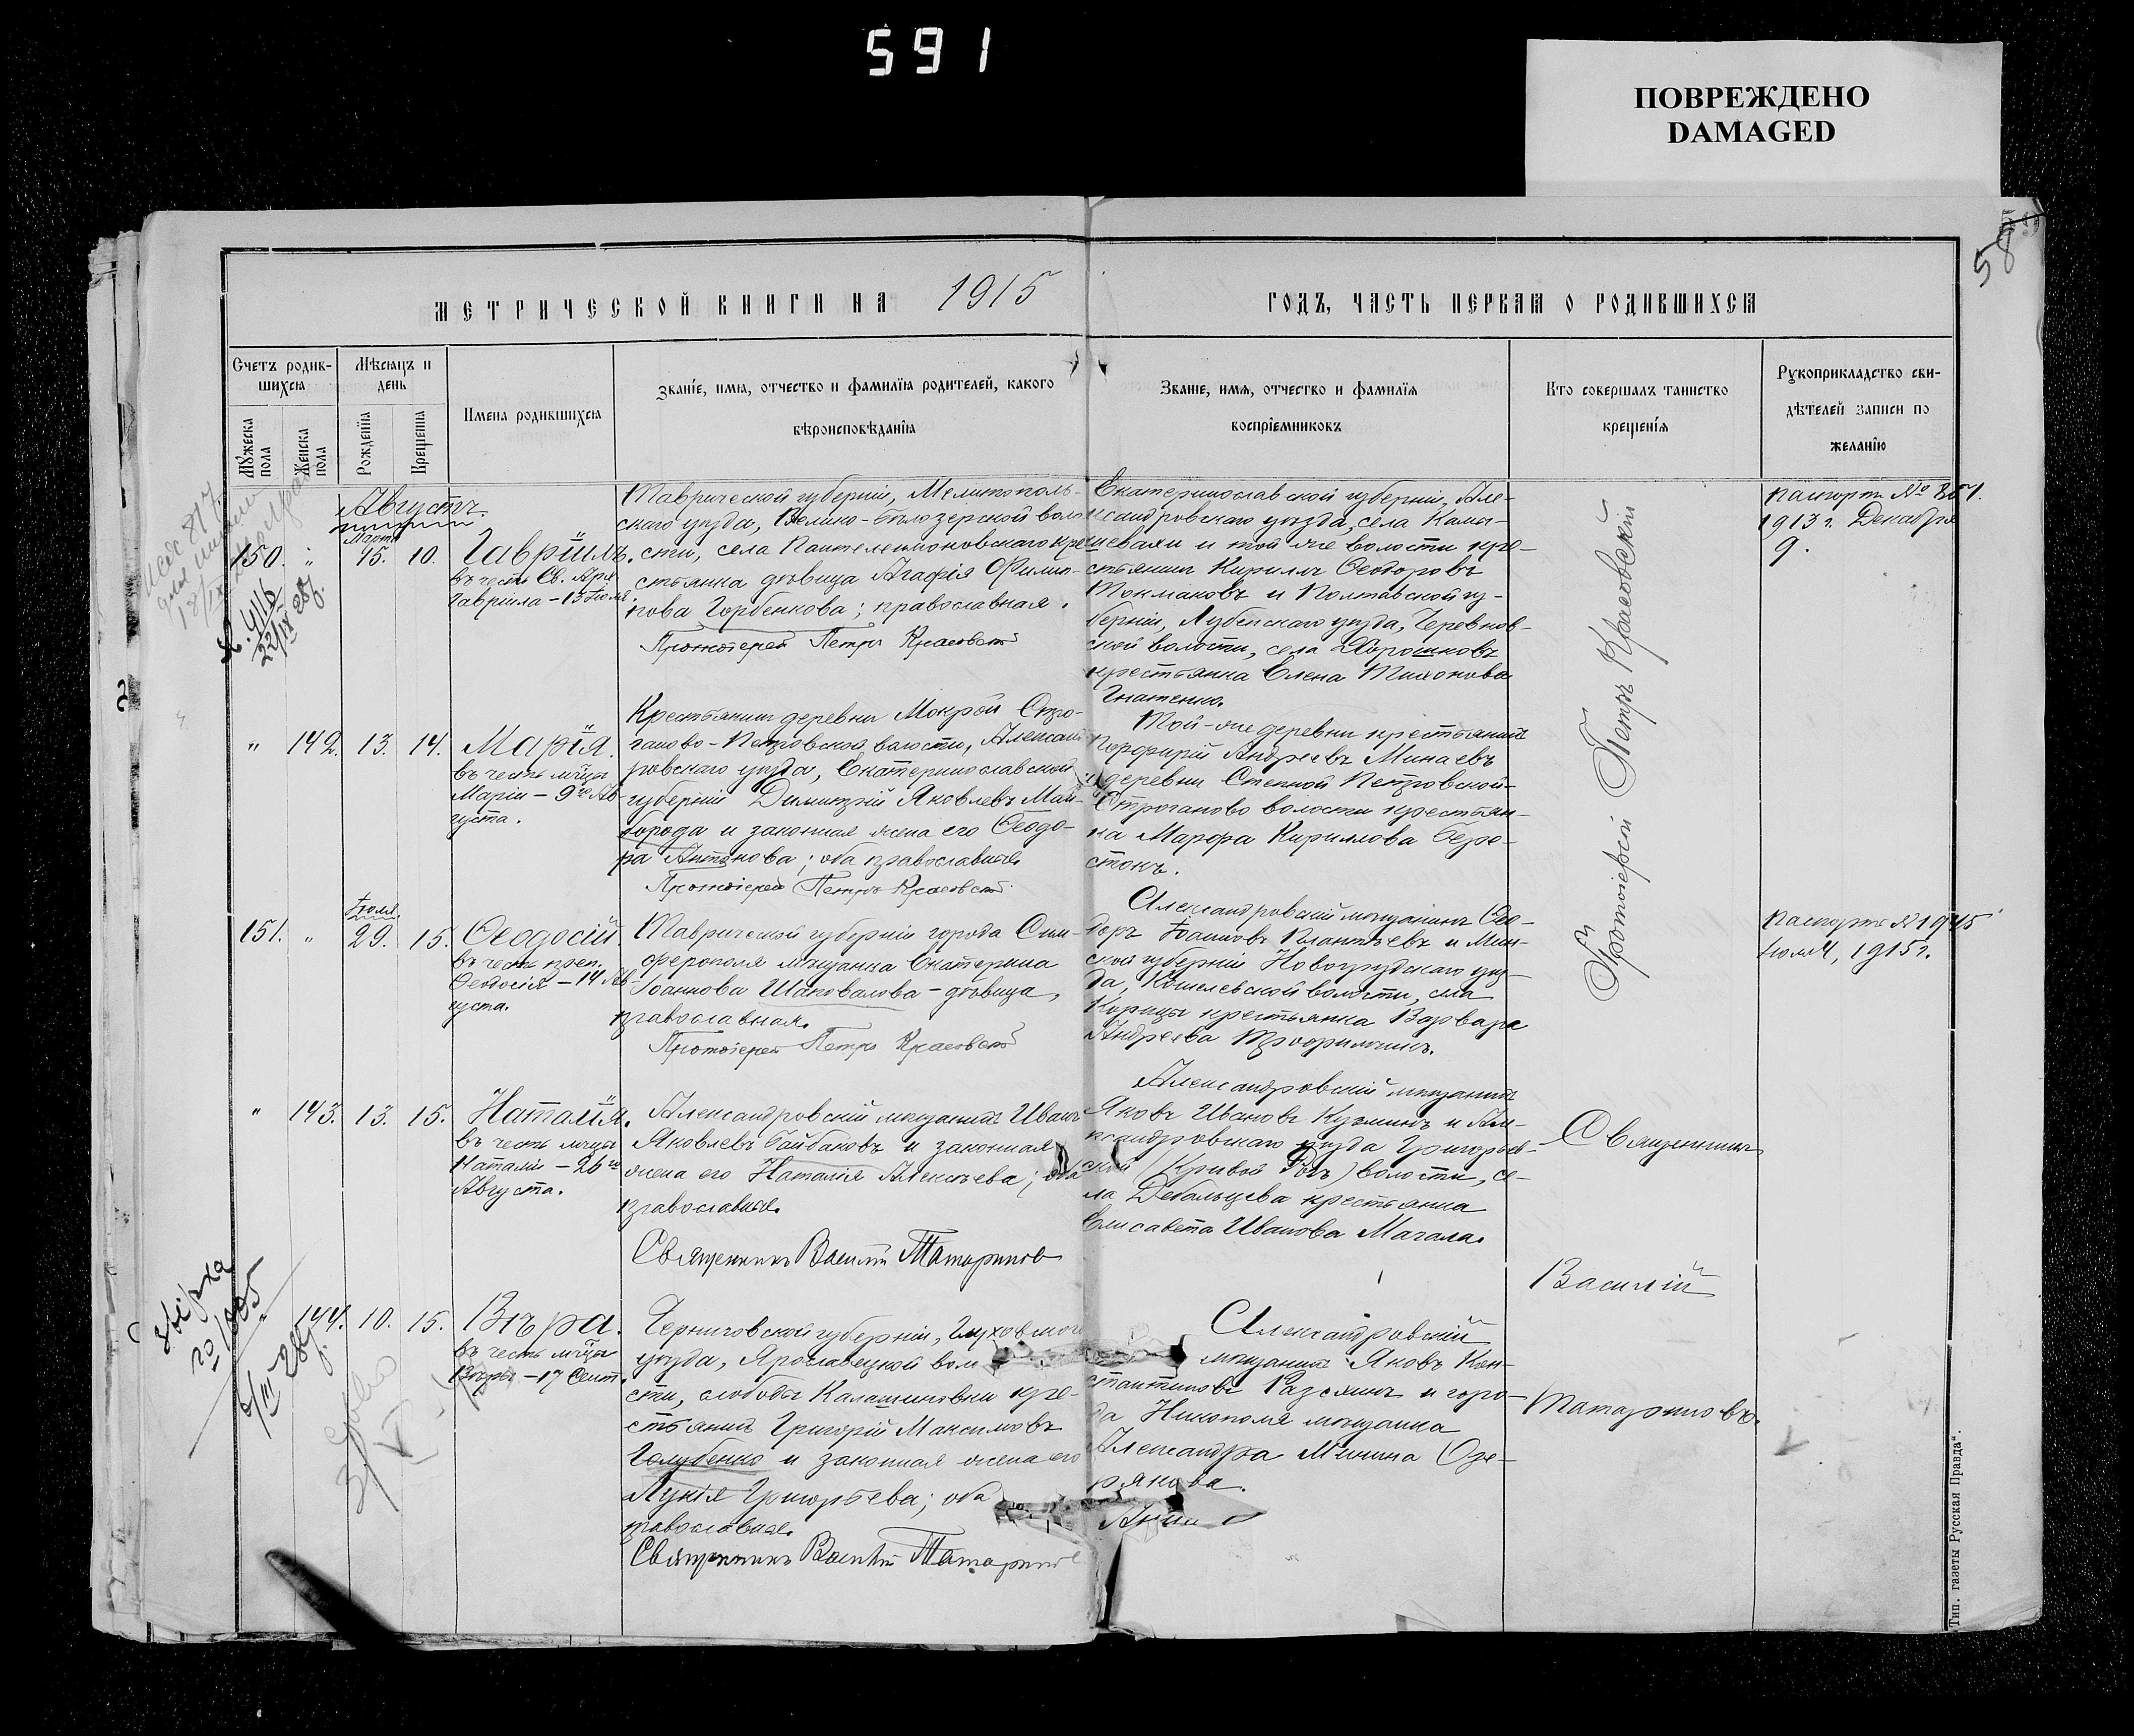 591
ПОВРЕЖДЕНО
DAMAGED
58
МЕТРИЧЕСКОЙ КНИГИ НА 1915 ГОДЪ, ЧАСТЬ ПЕРВАЯ О РОДИВШИХСЯ
Счетъ родив-
шихся
Мужеска
пола
Женска
пола
Мѣсяцъ и
день
Рожденїя
Крещенїя
Имена родившихся
Званїе, имя, отчество и фамилїя родителей, какого
вѣроисповѣданїя
Званїе, имя, отчество и фамилїя
воспрїемниковъ
Кто совершалъ таинство
крещенїя
Рукоприкладство сви-
дѣтелей записи по
желанїю
Августъ.
150. " Марта 15. 10. Гавріилъ.
въ честь Св. Арх.
Гавріила – 13 Іюля.
Таврической губерніи, Мелитополь-
скаго уѣзда, Велико-Бѣлозерской воло
сти, села Пантелеимоновскаго кре
стьянка дѣвица Агафія Филип-
пова Горбенкова; православная.
Протоіерей Петръ Красовскій
Екатеринославской губерніи, Але-
ксандровскаго уѣзда, села Камы-
шевахи и той же волости кре-
стьянинъ Кириллъ Ѳеодоровъ
Токмаковъ и Полтавской гу-
берніи, Лубенскаго уѣзда,
ской волости, села
крестьянка Елена Тихонова
Гнатенко.
паспортъ № 351.
1913 г. Декабря
9.
" 142. 13. 14. Марія.
въ честь мцы
Маріи – 9го Ав-
густа.
Крестьянинъ деревни Мокрой Стро-
ганово-Петровской волости, Александ
ровскаго уѣзда, Екатеринославской
губерніи Димитрій Яковлевъ Май-
борода и законная жена его Ѳеодо-
ра Антонова; оба православные.
Протоіерей Петръ Красовскій
Той-же деревни крестьянинъ
Порфирій Андреевъ Минаевъ
и деревни Степной Петровской-
Строганово волости крестьян-
ка Марфа Кириллова Бере-
стокъ.
Протоіерей Петръ Красовскій
151. " Іюля. 29. 15. Ѳеодосій.
въ честь преп.
Ѳеодосія – 14 Ав-
густа.
Таврической губерніи города Сим-
ферополя мѣщанка Екатерина
Іоаннова Шаповалова – дѣвица,
православная.
Протоіерей Петръ Красовскій
Александровскій мѣщанинъ Ѳео-
доръ Іоанновъ и Мин-
ской губерніи Новогрудскаго уѣз-
да, Кошелевской волости, села
крестьянка Варвара
Андреева
Паспортъ № 1945
Іюля, 1915 г.
" 143. 13. 15. Наталія.
въ честь мцы
Наталіи – 26го
Августа.
Александровскій мѣщанинъ Иванъ
Яковлевъ Байбаковъ и законная
жена его Наталія Алексѣева; оба
православные.
Священникъ Василій Татариновъ
Александровскій мѣщанинъ
Яковъ Ивановъ Кузминъ и Але-
ксандровскаго уѣзда Григорьев-
ской (Кривой Рогъ) волости, се-
ла Дебальцева крестьянка
Елисавета Иванова Магала.
Священникъ
Василій
Татариновъ.
" 144. 10. 15. Вѣра.
въ честь мцы
Вѣры – 17 Сент.
Черниговской губерніи, Глуховскаго
уѣзда, Ярославецкой воло
сти, слободы Калашиновки кре-
стьянинъ Григорій Максимовъ
Голубенко и законная жена его
Лукія Григорьева; оба
православные.
Священникъ Василій Татаринов
Александровскій
мѣщанинъ Яковъ Кон-
стантиновъ и горо-
да Никополя мѣщанка
Александра Минина Озе-
рякова.
Тип. газеты Русская Правда".